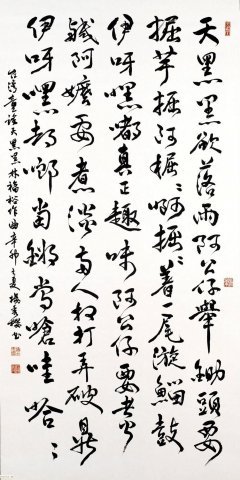 天黑黑欲落雨阿公仔舉鋤頭要
掘芋掘阿掘〻啊掘〻着一尾漩鰡鼓
伊呀嘿嘟真正趣味阿公仔要煮
鹹阿嬤要煮淡兩人相打弄破鼎
伊呀嘿都啷當鏘當嗆哇哈〻
台湾童謠天黑黑林福裕作曲辛卯之夏楊秀書